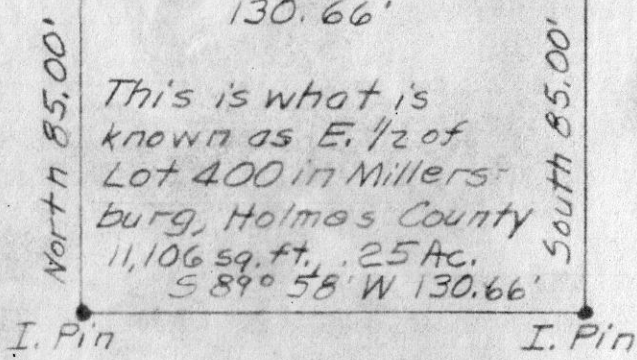 130.66'
North 85.00'
South 85.00'
This is what is
known as E. 1/2 of
Lot 400 in Millers-
burg, Holmes County
11,106 sq. ft., .25 Ac.
S 89° 58' W 130.66'
I. Pin
I. Pin